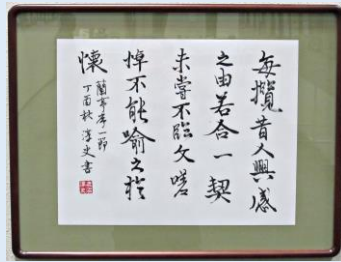 每攬昔人興感
之由若合一契
未嘗不臨文嗟
悼不能喻之於
懷
蘭亭序一節
丁酉秋 淳史書